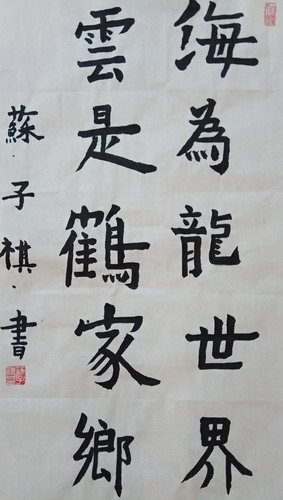 海為龍世界
雲是鶴家鄉
蘇子祺書